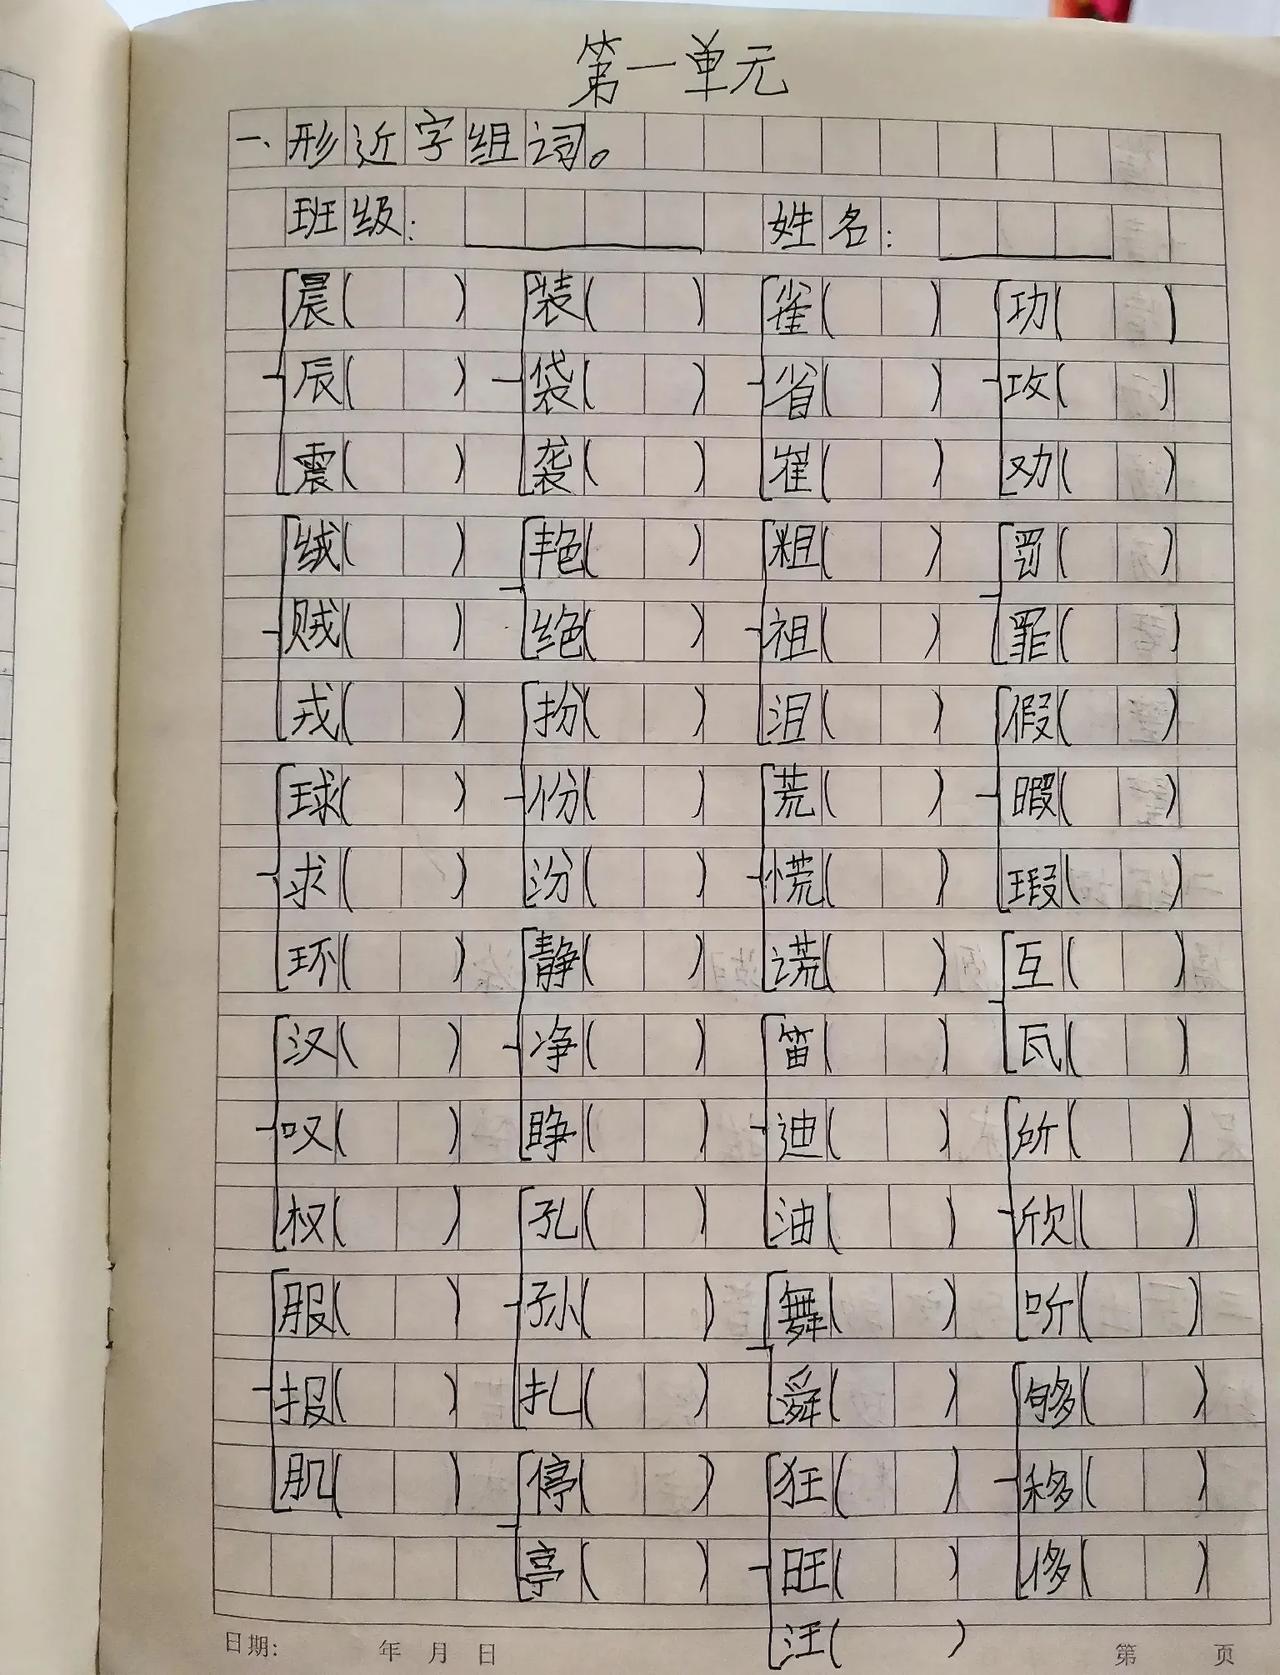 第一单元
一、形近字组词。
班级: 姓名:
晨( ) 装( ) 雀( ) 功( )
辰( ) 袋( ) 省( ) 攻( )
震( ) 袭( ) 崔( ) 劝( )
绒( ) 艳( ) 粗( ) 罚( )
贼( ) 绝( ) 祖( ) 罪( )
戎( ) 扮( ) 沮( ) 假( )
球( ) 份( ) 荒( ) 暇( )
求( ) 汾( ) 慌( ) 瑕( )
环( ) 静( ) 谎( ) 互( )
汉( ) 净( ) 笛( ) 瓦( )
叹( ) 睁( ) 迪( ) 所( )
权( ) 孔( ) 油( ) 欣( )
服( ) 孙( ) 舞( ) 听( )
报( ) 扎( ) 舜( ) 够( )
肌( ) 停( ) 狂( ) 移( )
亭( ) 旺( ) 侈( )
汪( )
日期: 年 月 日 第 页